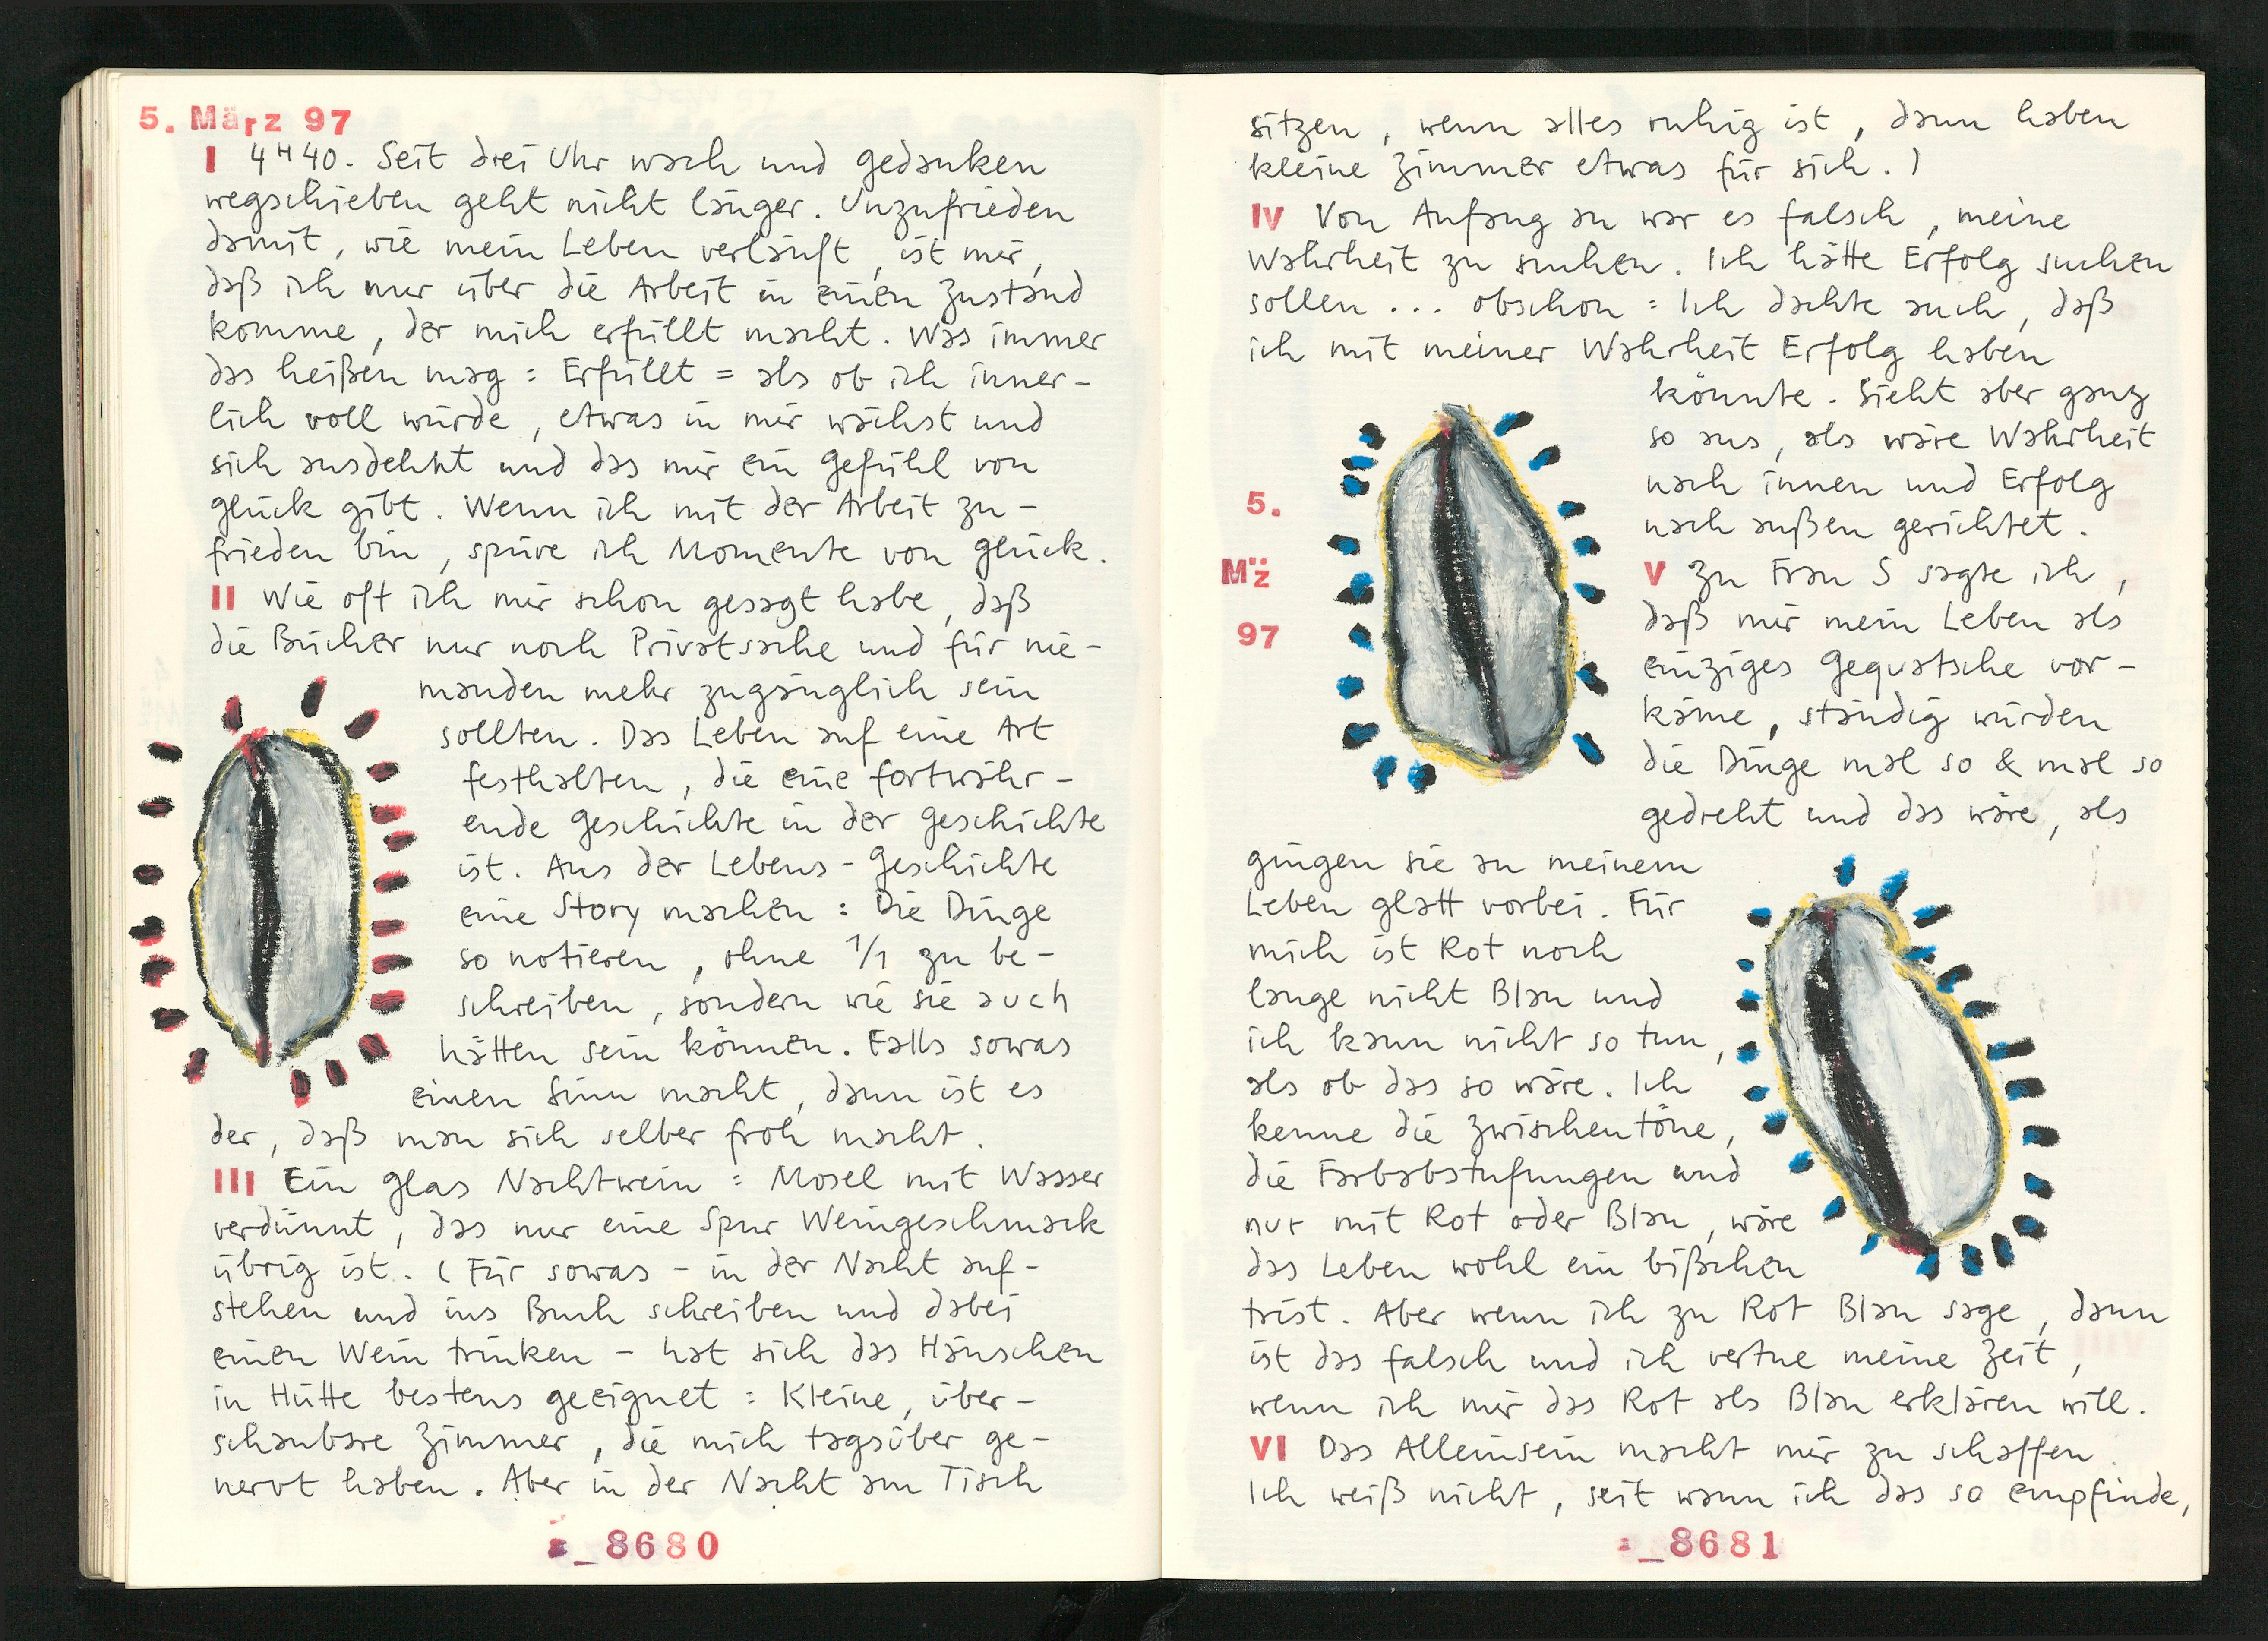 5. März 97
I 4H40. Seit drei Uhr wach und Gedanken
wegschieben geht nicht länger. Unzufrieden
damit, wie mein Leben verläuft, ist mir,
daß ich nur über die Arbeit in einen Zustand
komme, der mich erfüllt macht. Was immer
das heißen mag : Erfüllt = als ob ich inner-
lich voll würde, etwas in mir wächst und
sich ausdehnt und das mir ein Gefühl von
Glück gibt. Wenn ich mit der Arbeit zu-
frieden bin, spüre ich Momente von Glück.
II Wie oft ich mir schon gesagt habe, daß
die Bücher nur noch Privatsache und für nie-
manden mehr zugänglich sein
sollten. Das Leben auf eine Art
festhalten, die eine fortwähr-
ende Geschichte in der Geschichte
ist. Aus der Lebens-Geschichte
eine Story machen : Die Dinge
so notieren, ohne 1/1 zu be-
schreiben, sondern wie sie auch
hätten sein können. Falls sowas
einen Sinn macht, dann ist es
der, daß man sich selber froh macht.
III Ein Glas Nachtwein : Mosel mit Wasser
verdünnt, das nur eine Spur Weingeschmack
übrig ist. (Für sowas - in der Nacht auf-
stehen und ins Buch schreiben und dabei
einen Wein trinken - hat sich das Häuschen
in Hütte bestens geeignet : Kleine, über-
schaubare Zimmer, die mich tagsüber ge-
nervt haben. Aber in der Nacht am Tisch
_8680
sitzen, wenn alles ruhig ist, dann haben
kleine Zimmer etwas für sich.)
IV Von Anfang an war es falsch, meine
Wahrheit zu suchen. Ich hätte Erfolg suchen
sollen ... obschon : Ich dachte auch, daß
ich mit meiner Wahrheit Erfolg haben
könnte. Sieht aber ganz
so aus, als wäre Wahrheit
nach innen und Erfolg
nach außen gerichtet.
5.
M̈z
97
V Zu Frau S sagte ich,
daß mir mein Leben als
einziges Gequatsche vor-
käme, ständig würden
die Dinge mal so & mal so
gedreht und das wäre, als
gingen sie an meinem
Leben glatt vorbei. Für
mich ist Rot noch
lange nicht Blau und
ich kann nicht so tun,
als ob das so wäre. Ich
kenne die Zwischentöne,
die Farbabstufungen und
nur mit Rot oder Blau, wäre
das Leben wohl ein bißchen
trist. Aber wenn ich zu Rot Blau sage, dann
ist das falsch und ich vertue meine Zeit,
wenn ich mir das Rot als Blau erklären will.
VI Das Alleinsein macht mir zu schaffen.
Ich weiß nicht, seit wann ich das so empfinde,
_8681